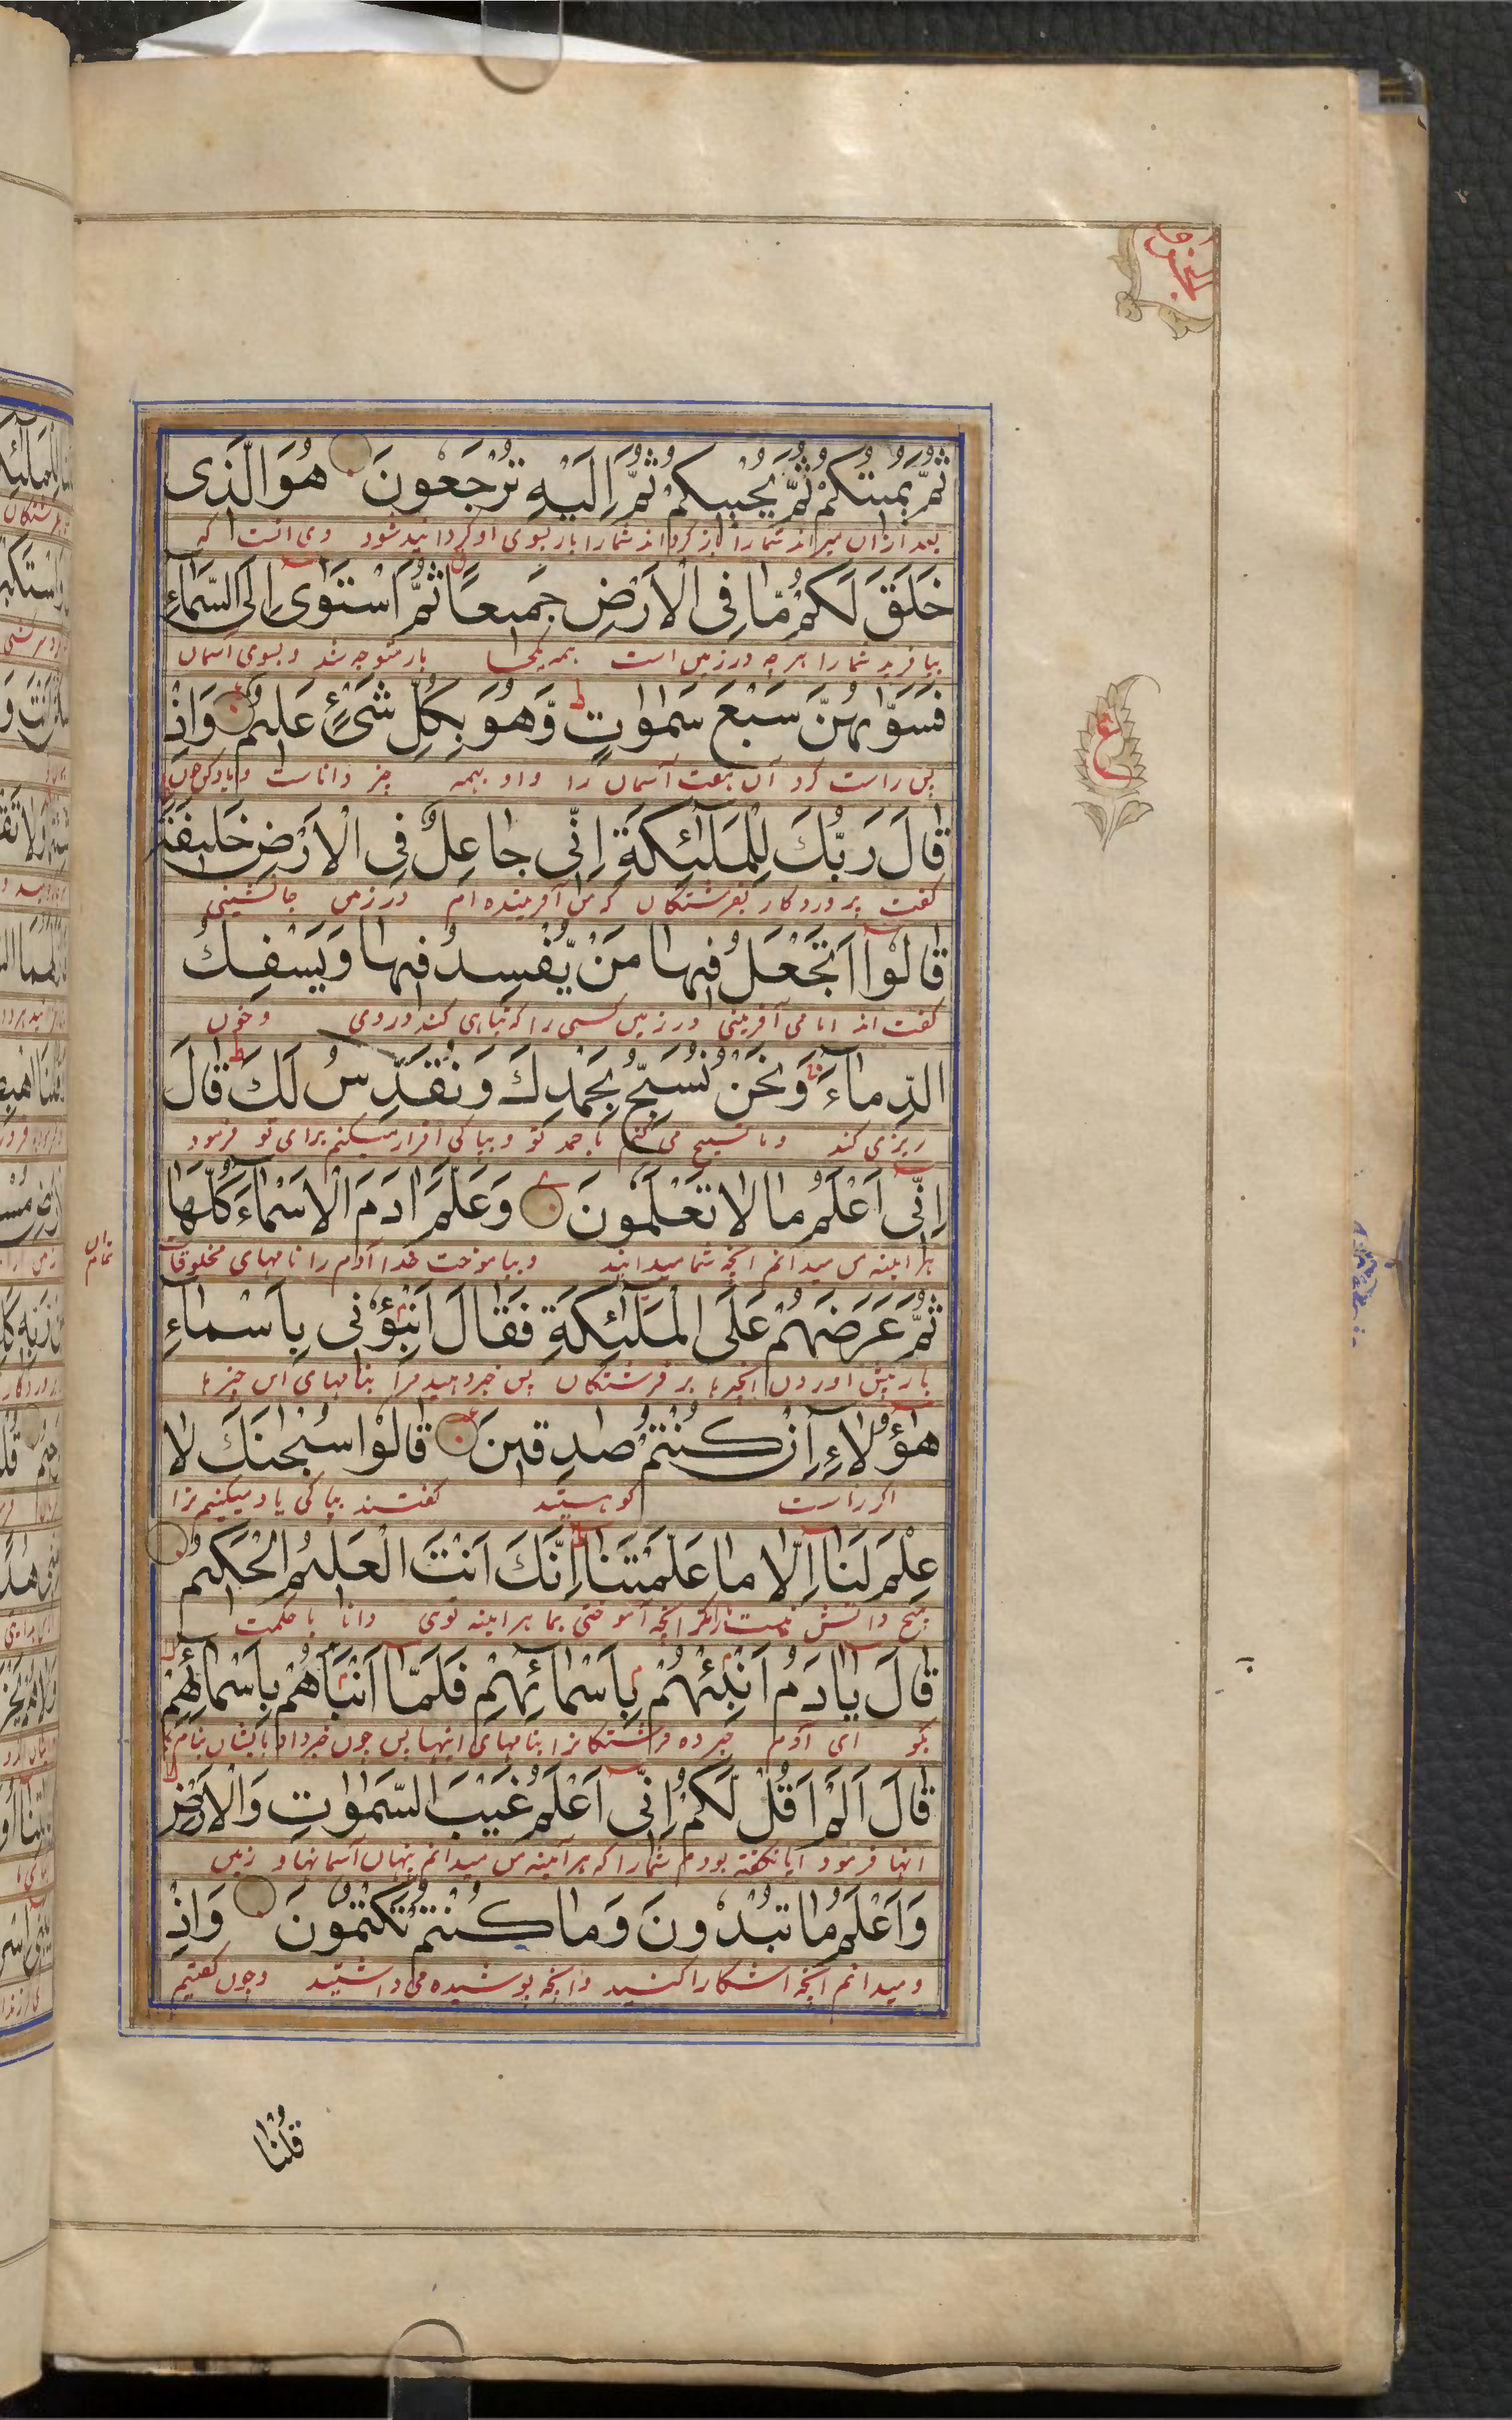 ثُمَّ يُمِيتُكُمْ ثُمَّ يُحْيِيكُمْ ثُمَّ اِلَيْهِ تُرْجَعُونَ هُوَ الَّذِى
بعد ازان میراند شما را باز گرداند شما را باز بسوی او گردانیده شود وی انست که
خَلَقَ لَكُمْ مَّا فِى الْاَرْضِ جَمِيعًا ثُمَّ اسْتَوٰى اِلَى السَّمَاءِ
بیافرید شما را هر چه در زمین است همه یکجا باز متوجه شد و بسوی آسمان
فَسَوّٰىهُنَّ سَبْعَ سَمٰوٰتٍ وَّهُوَ بِكُلِّ شَىْءٍ عَلِيمٌ وَاِذْ
پس راست کرد آن هفت آسمان را و او بهمه چیز داناست و یاد کن چون
قَالَ رَبُّكَ لِلْمَلٰئِكَةِ اِنِّى جَاعِلٌ فِى الْاَرْضِ خَلِيفَةً
گفت پروردکار بفرشتگان که من آفریننده ام در زمین جانشینی
قَالُوْا اَتَجْعَلُ فِيهَا مَنْ يُّفْسِدُ فِيهَا وَيَسْفِكُ
گفت اند ایا می آفرینی در زمین کسی را که تباهی کند در وی و خون
الدِّمَاءَ وَنَحْنُ نُسَبِّحُ بِحَمْدِكَ وَنُقَدِّسُ لَكَ قَالَ
ریزی کند و ما تسبیح می کنم با حمد تو و بپاکی اقرار میکنم برای تو فرمود
اِنِّى اَعْلَمُ مَا لَا تَعْلَمُونَ وَعَلَّمَ اٰدَمَ الْاَسْمَاءَ كُلَّهَا
هر اینه من میدانم انچه شما میدانید و بیاموخت خدا آدم را نامهای مخلوقات
ثُمَّ عَرَضَهُمْ عَلَى الْمَلٰئِكَةِ فَقَالَ اَنْبِؤُنِى بِاَسْمَاءِ
باز پیش اوردن انچیزها بر فرشتگان پس خبر دهید مرا بنامهای این چیزها
هٰؤُلَاءِ اِنْ كُنْتُمْ صٰدِقِينَ قَالُوْا سُبْحٰنَكَ لَا
اگر راست گو هستید گفتند بپاکی یاد میکنیم ترا
عِلْمَ لَنَا اِلَّا مَا عَلَّمْتَنَا اِنَّكَ اَنْتَ الْعَلِيمُ الْحَكِيمُ
هیچ دانش نیست ما را مگر انچه آموختی بما هر اینه توی دانا با حکمت
قَالَ يَا اٰدَمُ اَنْبِئْهُمْ بِاَسْمَائِهِمْ فَلَمَّا اَنْبَاَهُمْ بِاَسْمَائِهِمْ
بگو ای آدم خبر ده فرشتگانرا بنامهای اینها پس چون خبر داد بایشان بنام
قَالَ اَلَمْ اَقُلْ لَّكُمْ اِنِّى اَعْلَمُ غَيْبَ السَّمٰوٰتِ وَالْاَرْضِ
انها فرمود ایا نگفته بودم شما را که هر آینه من میدانم پنهان آسمانها و زمین
وَاَعْلَمُ مَا تُبْدُونَ وَمَا كُنْتُمْ تَكْتُمُونَ وَاِذْ
و میدانم انچه اشکارا کنید و انچه پوشیده می داشتید و چون گفتیم
قُلْنَا
ع